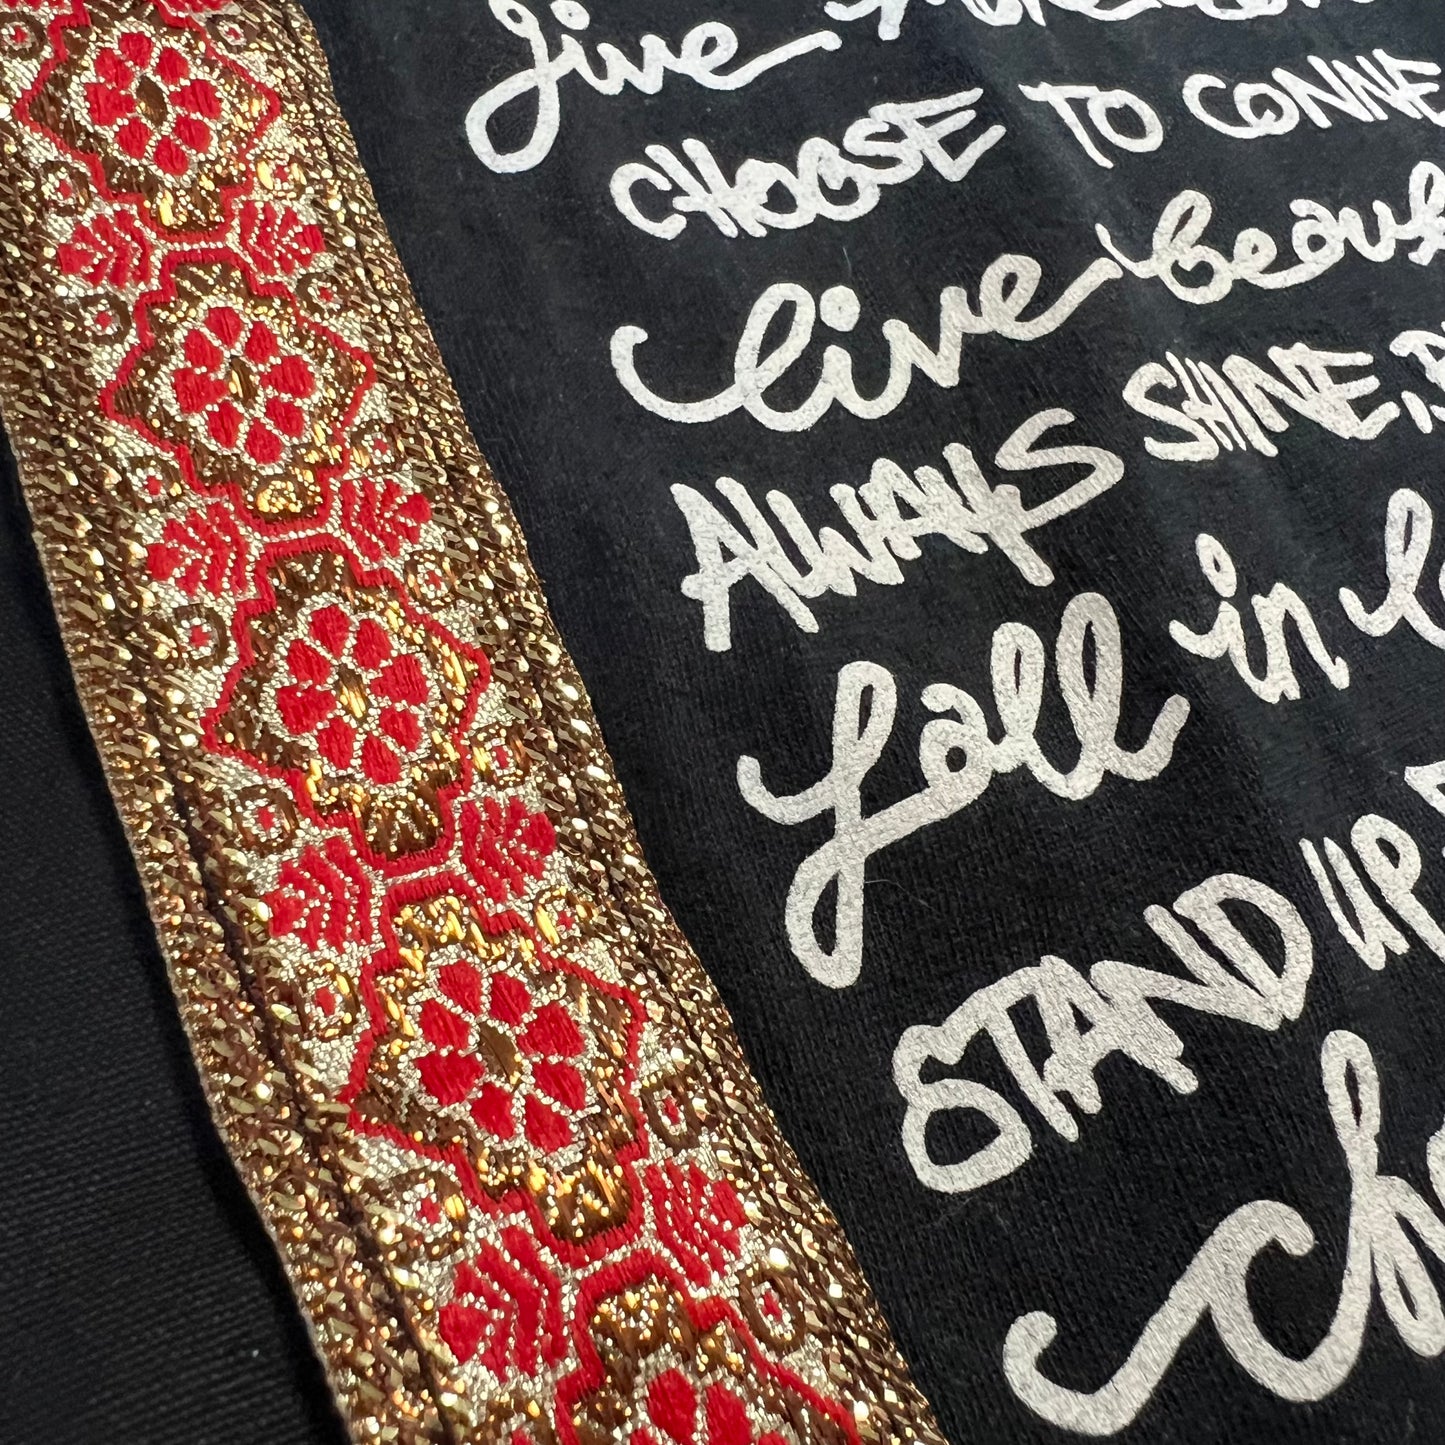 live
CHOOSE TO CONNE
live beauti
ALWAYS SHINE,
fall in lo
STAND UP
cho